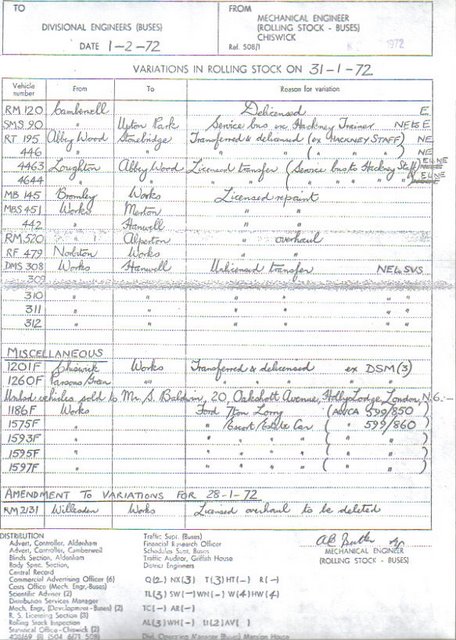 TO
FROM
DIVISIONAL ENGINEERS (BUSES)
MECHANICAL ENGINEER
(ROLLING STOCK - BUSES)
CHISWICK
DATE 1-2-72
Ref. 508/1
1972
VARIATIONS IN ROLLING STOCK ON 31-1-72
Vehicle number From To Reason for variation
RM 120 Camberwell Delicensed E
SMS 90 Upton Park Service bus ex Hackney Trainer NE to E
RT 195 Abbey Wood Stonebridge Transferred & delicensed (ex HACKNEY STAFF) NE
446 " " " " ( " " " ) NE
4463 Loughton Abbey Wood Licensed transfer (Service bus to Hackney Staff)
4644 " " " " ( " " " " )
MB 145 Bromley Works Licensed repaint
MBS 451 Works Merton " "
442 " Hanwell " "
RM 520 " Alperton " overhaul
RF 479 Norbiton Works " "
DMS 308 Works Hanwell Unlicensed transfer NEL SVS
309
310 " " " "
311 " " " "
312 " " " "
MISCELLANEOUS
1201F Chiswick Works Transferred & delicensed ex DSM (3)
1260F Parsons Green " " "
Listed vehicles sold to Mr. S. Baldwin, 20, Oakshott Avenue, Holly Lodge, London, N.6:-
1186F Works Ford 7 ton Lorry (AD/CA 599/850)
1575F " Escort Estate Car ( " 599/860)
1593F " " " " ( " " )
1595F " " " " ( " " )
1597F " " " " ( " " )
AMENDMENT TO VARIATIONS FOR 28-1-72
RM 2131 Willesden Works Licensed overhaul to be deleted
DISTRIBUTION
Advert. Controller, Aldenham
Advert. Controller, Camberwell
Blinds Section, Aldenham
Body Spec. Section,
Central Record
Commercial Advertising Officer (6)
Costs Office (Mech. Engr.-Buses)
Scientific Adviser (2)
Distribution Services Manager
Mech. Engr. (Development - Buses) (2)
R. S. Licensing Section (3)
Rolling Stock Inspection
Statistical Office - Chiswick (2)
Traffic Supt. (Buses)
Financial Research Officer
Schedules Supt. Buses
Traffic Auditor, Griffith House
District Engineers
MECHANICAL ENGINEER
(ROLLING STOCK - BUSES)
Div. Operating Manager (Buses) Mansion House